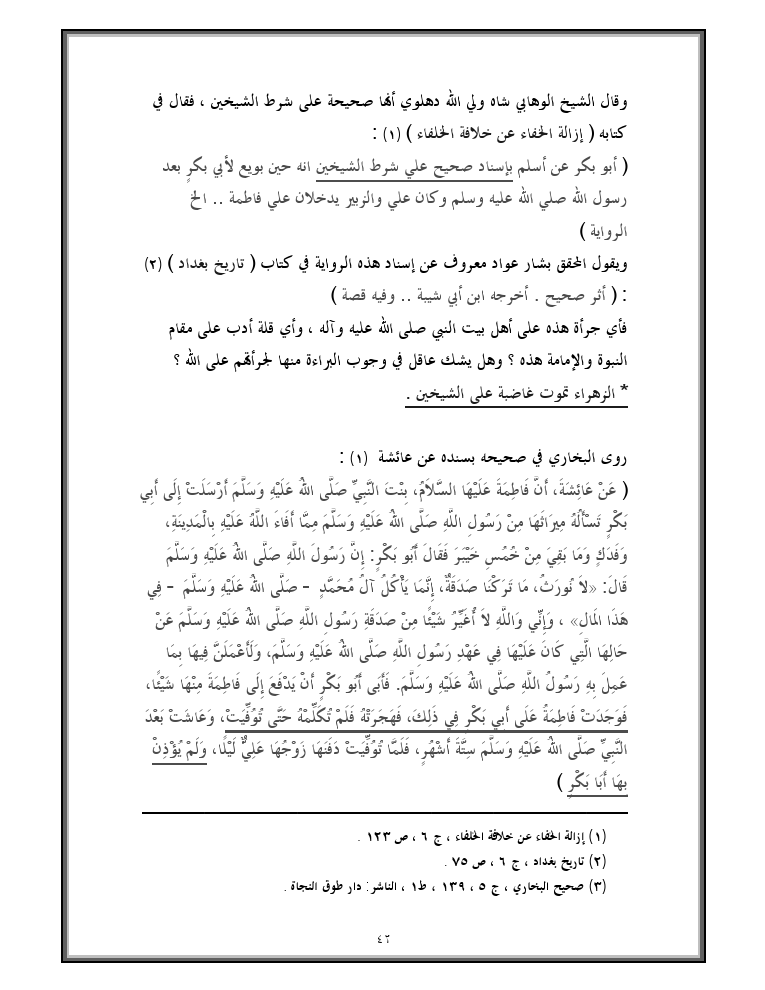 وقال الشيخ الوهابي شاه ولي الله دهلوي أنها صحيحة على شرط الشيخين ، فقال في
كتابه ( إزالة الخفاء عن خلافة الخلفاء ) (١) :
( أبو بكر عن أسلم بإسناد صحيح علي شرط الشيخين انه حين بويع لأبي بكرٍ بعد
رسول الله صلي الله عليه وسلم وكان علي والزبير يدخلان علي فاطمة .. الخ
الرواية )
ويقول المحقق بشار عواد معروف عن إسناد هذه الرواية في كتاب ( تاريخ بغداد ) (٢)
: ( أثر صحيح . أخرجه ابن أبي شيبة .. وفيه قصة )
فأي جرأة هذه على أهل بيت النبي صلى الله عليه وآله ، وأي قلة أدب على مقام
النبوة والإمامة هذه ؟ وهل يشك عاقل في وجوب البراءة منها لجرأتهم على الله ؟
* الزهراء تموت غاضبة على الشيخين .
روى البخاري في صحيحه بسنده عن عائشة (١) :
( عَنْ عَائِشَةَ، أَنَّ فَاطِمَةَ عَلَيْهَا السَّلاَمُ، بِنْتَ النَّبِيِّ صَلَّى اللهُ عَلَيْهِ وَسَلَّمَ أَرْسَلَتْ إِلَى أَبِي
بَكْرٍ تَسْأَلُهُ مِيرَاثَهَا مِنْ رَسُولِ اللَّهِ صَلَّى اللهُ عَلَيْهِ وَسَلَّمَ مِمَّا أَفَاءَ اللَّهُ عَلَيْهِ بِالْمَدِينَةِ،
وَفَدَكٍ وَمَا بَقِيَ مِنْ خُمُسِ خَيْبَرَ فَقَالَ أَبُو بَكْرٍ: إِنَّ رَسُولَ اللَّهِ صَلَّى اللهُ عَلَيْهِ وَسَلَّمَ
قَالَ: «لاَ نُورَثُ، مَا تَرَكْنَا صَدَقَةٌ، إِنَّمَا يَأْكُلُ آلُ مُحَمَّدٍ - صَلَّى اللهُ عَلَيْهِ وَسَلَّمَ - فِي
هَذَا المَالِ» ، وَإِنِّي وَاللَّهِ لاَ أُغَيِّرُ شَيْئًا مِنْ صَدَقَةِ رَسُولِ اللَّهِ صَلَّى اللهُ عَلَيْهِ وَسَلَّمَ عَنْ
حَالِهَا الَّتِي كَانَ عَلَيْهَا فِي عَهْدِ رَسُولِ اللَّهِ صَلَّى اللهُ عَلَيْهِ وَسَلَّمَ، وَلَأَعْمَلَنَّ فِيهَا بِمَا
عَمِلَ بِهِ رَسُولُ اللَّهِ صَلَّى اللهُ عَلَيْهِ وَسَلَّمَ. فَأَبَى أَبُو بَكْرٍ أَنْ يَدْفَعَ إِلَى فَاطِمَةَ مِنْهَا شَيْئًا،
فَوَجَدَتْ فَاطِمَةُ عَلَى أَبِي بَكْرٍ فِي ذَلِكَ، فَهَجَرَتْهُ فَلَمْ تُكَلِّمْهُ حَتَّى تُوُفِّيَتْ، وَعَاشَتْ بَعْدَ
النَّبِيِّ صَلَّى اللهُ عَلَيْهِ وَسَلَّمَ سِتَّةَ أَشْهُرٍ، فَلَمَّا تُوُفِّيَتْ دَفَنَهَا زَوْجُهَا عَلِيٌّ لَيْلًا، وَلَمْ يُؤْذِنْ
بِهَا أَبَا بَكْرٍ )
(١) إزالة الخفاء عن خلافة الخلفاء ، ج ٦ ، ص ١٢٣ .
(٢) تاريخ بغداد ، ج ٦ ، ص ٧٥ .
(٣) صحيح البخاري ، ج ٥ ، ١٣٩ ، ط١ ، الناشر: دار طوق النجاة .
٤٢